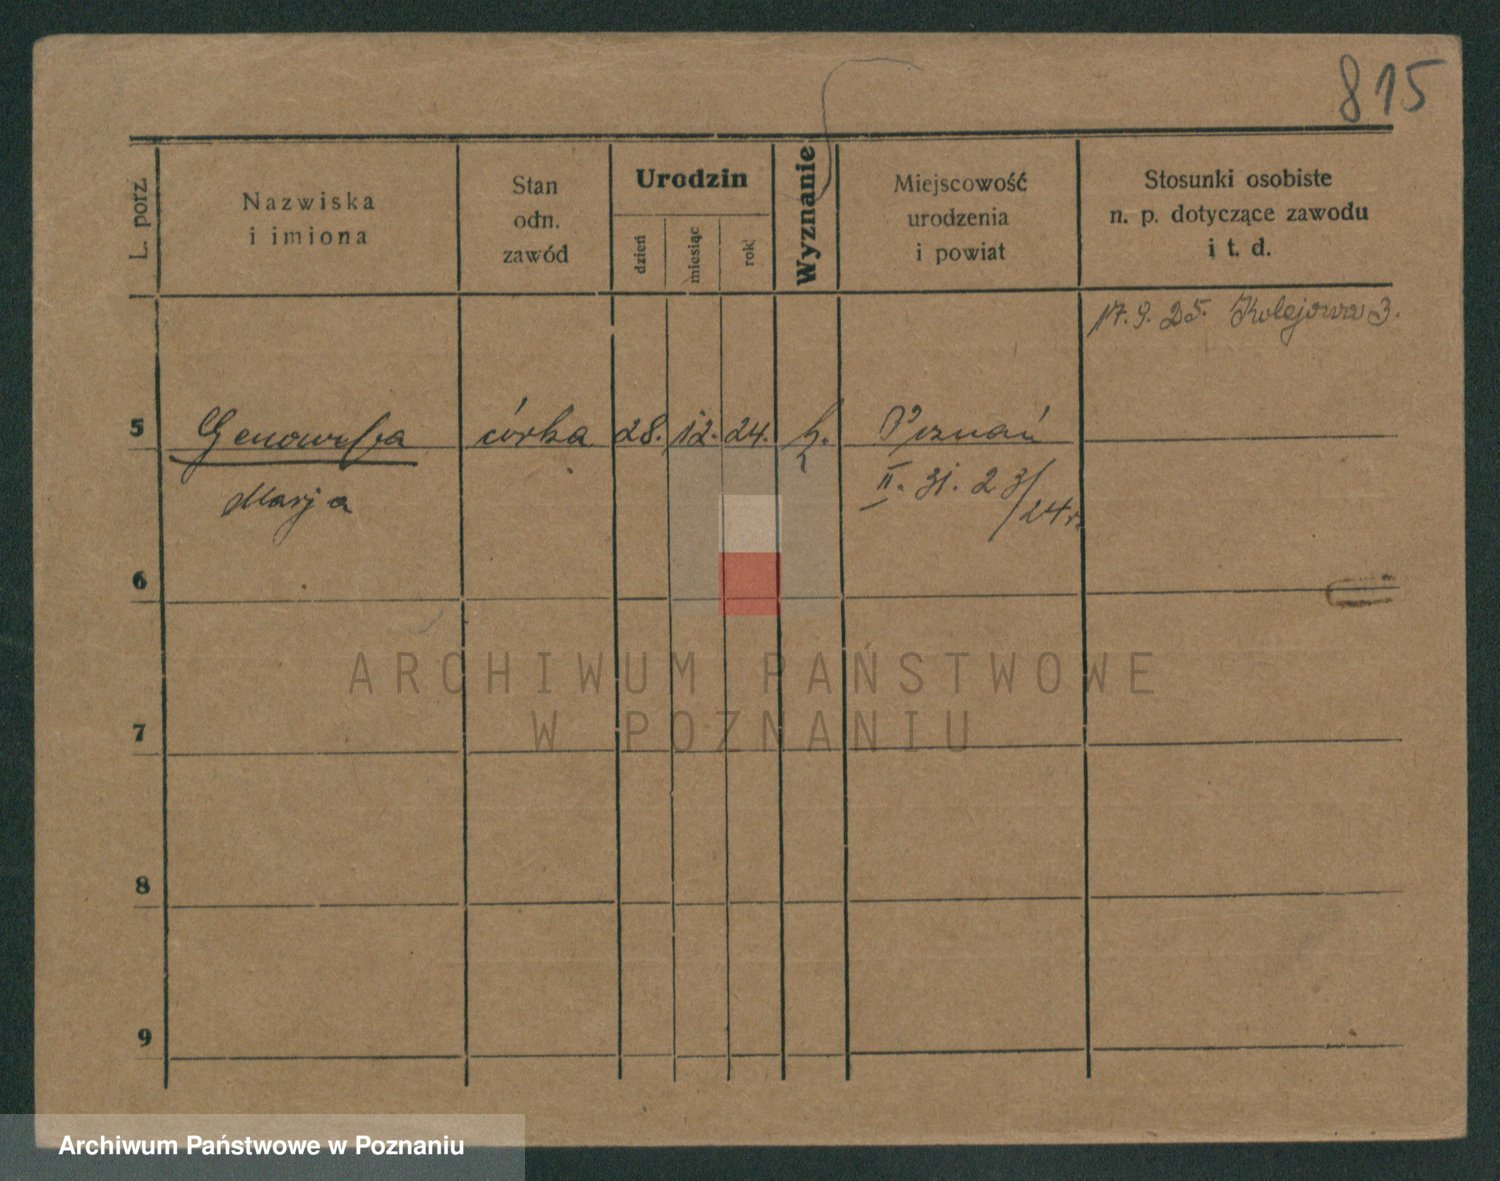 815
L. porz.
Nazwiska
i imiona
Stan
odn.
zawód
Urodzin
dzień
miesiąc
rok
Wyznanie
Miejscowość
urodzenia
i powiat
Stosunki osobiste
n. p. dotyczące zawodu
i t. d.
17.9.25. Kolejowa 3.
5 Genowefa córka 28. 12. 24. k. Poznań
Marja II. 31. 23/24 r.
6
7
8
9
ARCHIWUM PAŃSTWOWE
W POZNANIU
Archiwum Państwowe w Poznaniu